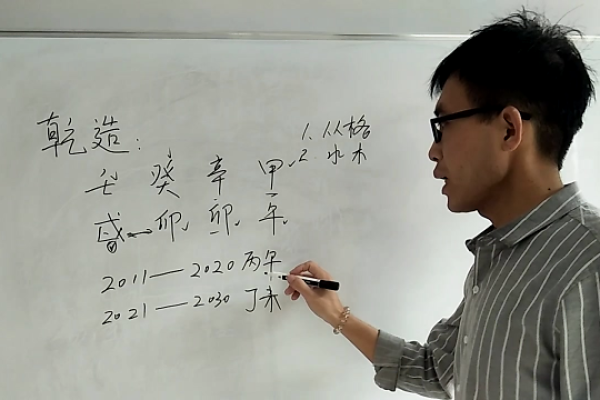 乾造:
1. 从格
2. 水木
壬 癸 辛 甲
戌 卯 卯 午
2011—2020 丙午
2021—2030 丁未